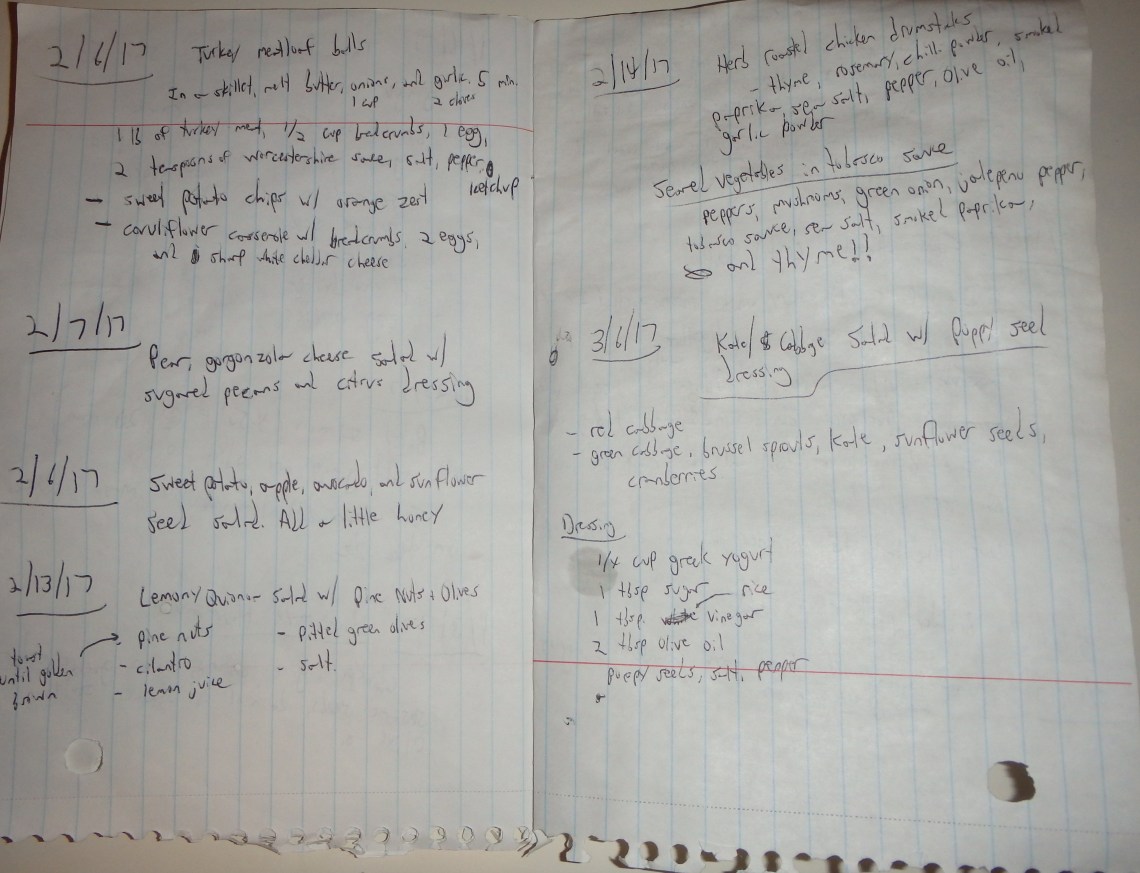 2/6/17 Turkey meatloaf balls
In a skillet, melt butter, onions, and garlic. 5 min.
1 cup 2 cloves
1 lb of turkey meat, 1/2 cup breadcrumbs, 1 egg,
2 teaspoons of worcestershire sauce, salt, pepper,
ketchup
- sweet potato chips w/ orange zest
- cauliflower casserole w/ breadcrumbs, 2 eggs,
and sharp white cheddar cheese
2/7/17
Pear, gorgonzola cheese salad w/
sugared pecans and citrus dressing
2/6/17 Sweet potato, apple, avocado, and sunflower
seed salad. All a little honey
2/13/17 Lemony Quinoa Salad w/ Pine Nuts + Olives
toast until golden brown
- pine nuts - pitted green olives
- cilantro - salt.
- lemon juice
2/14/17 Herb roasted chicken drumsticks
- thyme, rosemary, chili powder, smoked
paprika, sea salt, pepper, olive oil,
garlic powder
Seared vegetables in tobasco sauce
peppers, mushrooms, green onion, jalepeno pepper,
tobasco sauce, sea salt, smoked paprika,
and thyme!!
3/6/17 Kale/Cabbage Salad w/ Puppy seed
dressing
- red cabbage
- green cabbage, brussel sprouts, kale, sunflower seeds,
cranberries
Dressing
1/4 cup greek yogurt
1 tbsp sugar
rice
1 tbsp. vinegar
2 tbsp olive oil
puppy seeds, salt, pepper